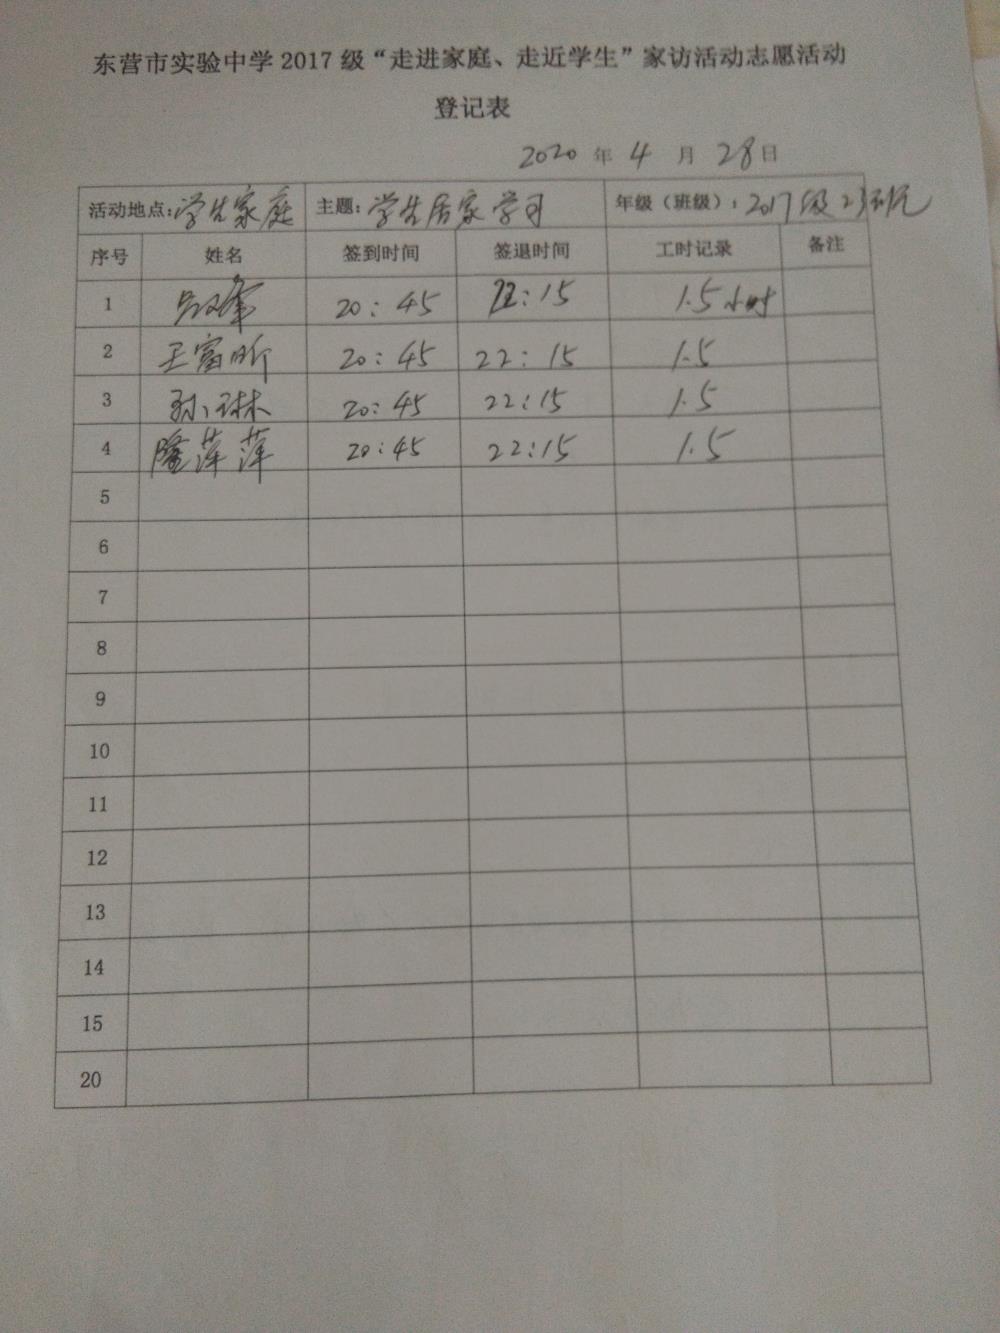 东营市实验中学2017级“走进家庭、走近学生”家访活动志愿活动
登记表
2020年4月28日
活动地点:学生家庭 主题:学生居家学习 年级（班级）:2017级23班
序号 姓名 签到时间 签退时间 工时记录 备注
1 20:45 22:15 1.5小时
2 王富昕 20:45 22:15 1.5
3 孙琳 20:45 22:15 1.5
4 隆萍萍 20:45 22:15 1.5
5
6
7
8
9
10
11
12
13
14
15
20